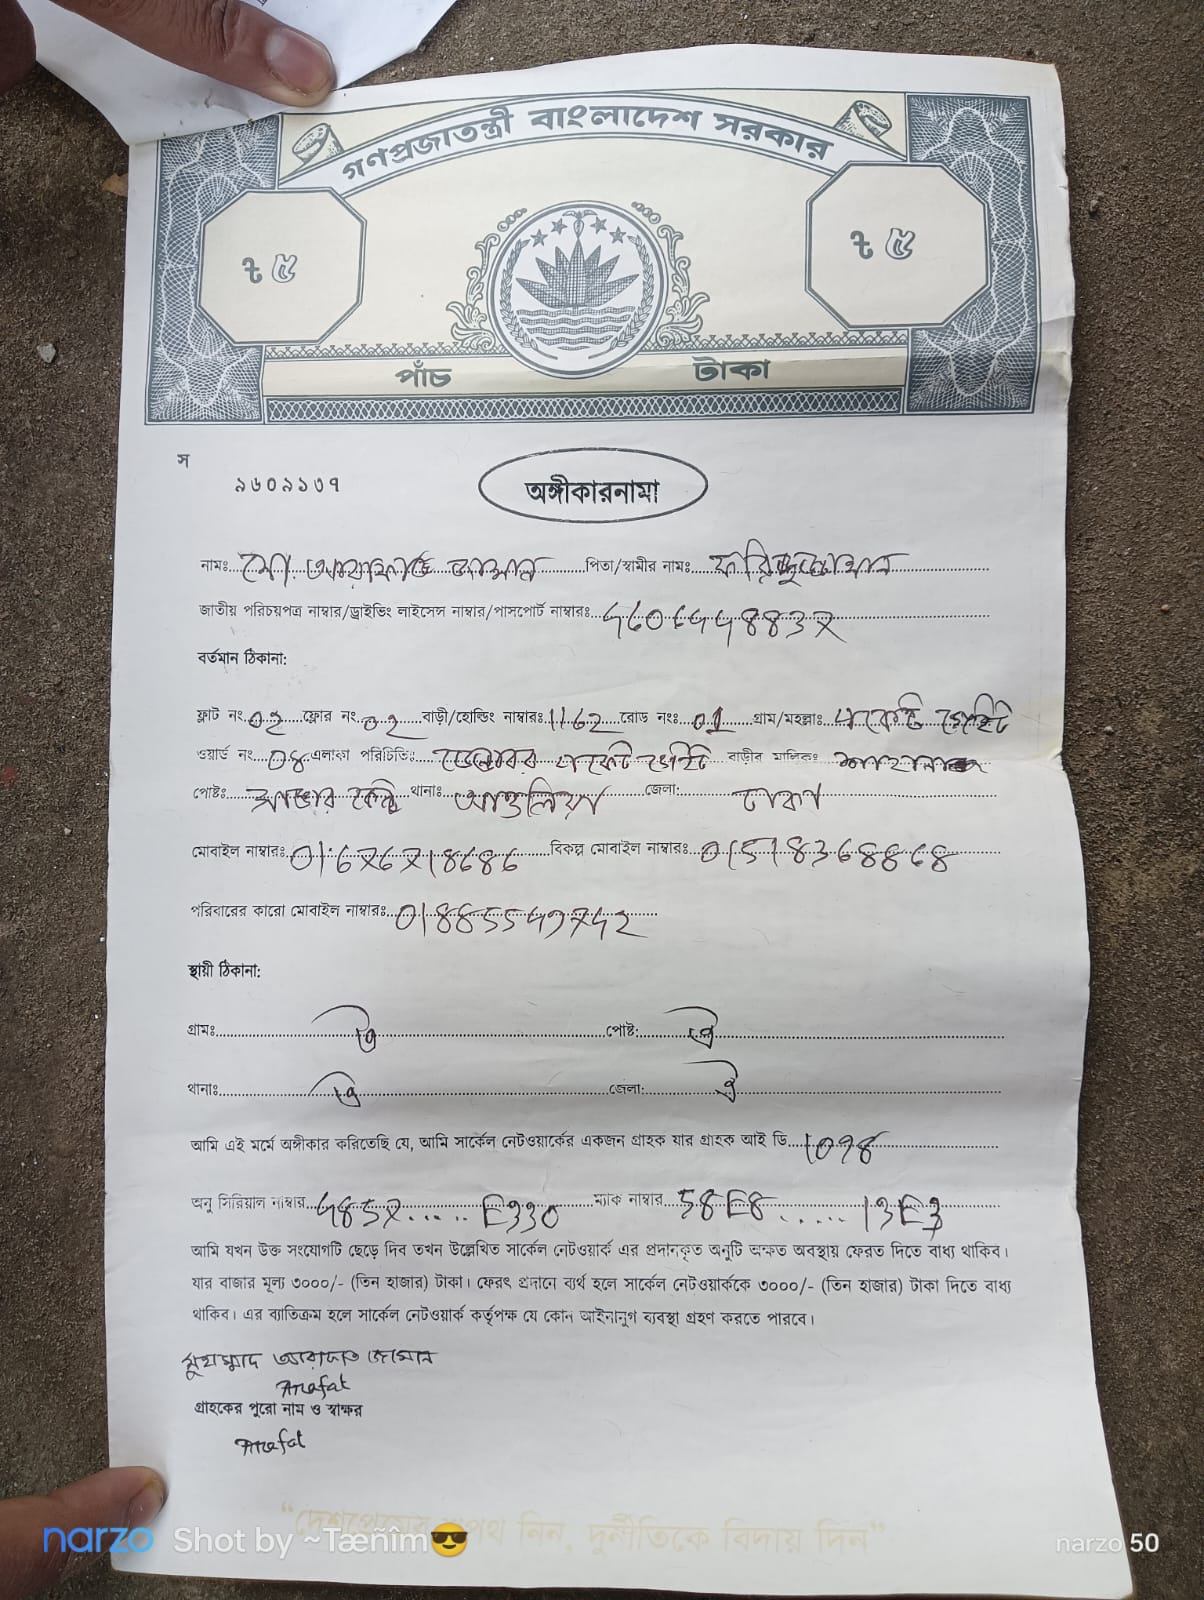 গণপ্রজাতন্ত্রী বাংলাদেশ সরকার
৳ ৫ ৳ ৫
পাঁচ টাকা
স
৯৬০৯১৩৭
অঙ্গীকারনামা
নামঃ মো আরাফাত জামান পিতা/স্বামীর নামঃ
জাতীয় পরিচয়পত্র নাম্বার/ড্রাইভিং লাইসেন্স নাম্বার/পাসপোর্ট নাম্বারঃ
বর্তমান ঠিকানা:
ফ্লাট নং 02 ফ্লোর নং 02 বাড়ী/হোল্ডিং নাম্বারঃ 1162 রোড নংঃ 01 গ্রাম/মহল্লাঃ
ওয়ার্ড নং 08 এলাকা পরিচিতিঃ বাড়ীর মালিকঃ
পোষ্টঃ থানাঃ আশুলিয়া জেলা: ঢাকা
মোবাইল নাম্বারঃ বিকল্প মোবাইল নাম্বারঃ
পরিবারের কারো মোবাইল নাম্বারঃ
স্থায়ী ঠিকানা:
গ্রামঃ ঐ পোষ্ট: ঐ
থানাঃ ঐ জেলা: ঐ
আমি এই মর্মে অঙ্গীকার করিতেছি যে, আমি সার্কেল নেটওয়ার্কের একজন গ্রাহক যার গ্রাহক আই ডি
অনু সিরিয়াল নাম্বার E330 ম্যাক নাম্বার 58E8 ...... 13E3
আমি যখন উক্ত সংযোগটি ছেড়ে দিব তখন উল্লেখিত সার্কেল নেটওয়ার্ক এর প্রদানকৃত অনুটি অক্ষত অবস্থায় ফেরত দিতে বাধ্য থাকিব।
যার বাজার মূল্য ৩০০০/- (তিন হাজার) টাকা। ফেরৎ প্রদানে ব্যর্থ হলে সার্কেল নেটওয়ার্ককে ৩০০০/- (তিন হাজার) টাকা দিতে বাধ্য
থাকিব। এর ব্যাতিক্রম হলে সার্কেল নেটওয়ার্ক কর্তৃপক্ষ যে কোন আইনানুগ ব্যবস্থা গ্রহণ করতে পারবে।
মুহাম্মাদ আরাফাত জামান
Arafat
গ্রাহকের পুরো নাম ও স্বাক্ষর
Arafat
“দেশপ্রেমের শপথ নিন, দুর্নীতিকে বিদায় দিন”
narzo Shot by ~Tæñîm😎 narzo 50